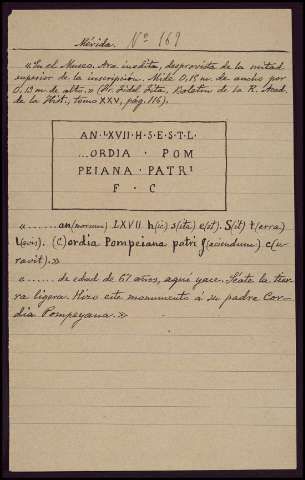 Mérida. Nº 169
"En el Museo. Ara inedita, desprovista de la mitad
superior de la inscripción. Mide 0,15 m. de ancho por
0,13 m. de alto." (Fr. Fidel Fita, Boletín de la R. Acad.
de la Hist., tomo XXV, pág. 116).
AN · LXVII · H · S · E · S · T · L ·
...ORDIA · POM
PEIANA · PATRI
F · C
"...... an(norum) LXVII h(ic) s(itus) e(st). S(it) t(erra)
l(evis). (C)ordia Pompeiana patri f(aciendum) c(u-
ravit)."
"....... de edad de 67 años, aquí yace. Séate la tier-
ra ligera. Hizo este monumento á su padre Cor-
dia Pompeyana."